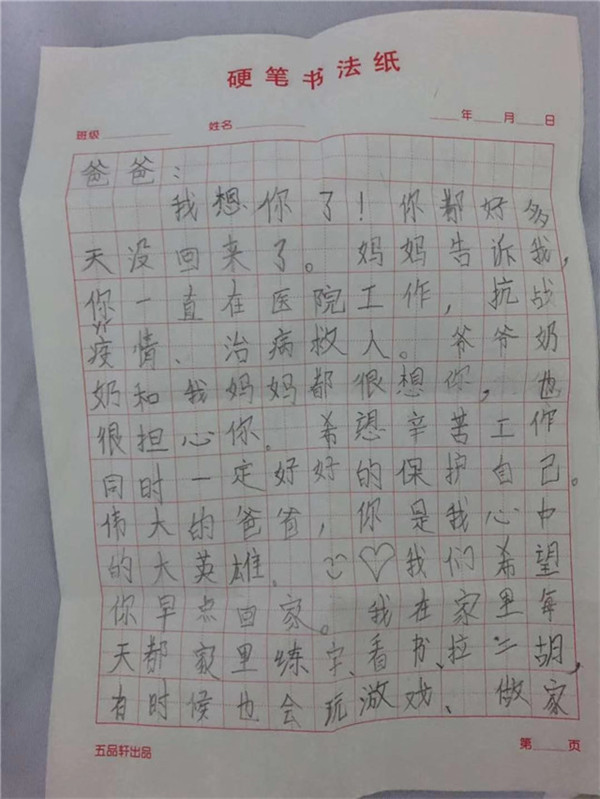 硬笔书法纸
班级 姓名 年 月 日
爸爸：
我想你了！你都好多
天没回来了。妈妈告诉我，
你一直在医院工作，抗战
疫情、治病救人。爷爷奶
奶和我妈妈都很想你，也
很担心你。希望辛苦工作
同时一定好好的保护自己。
伟大的爸爸，你是我心中
的大英雄。我们希望
你早点回家。我在家里每
天都家里练字、看书、拉二胡，
有时候也会玩游戏、做家
五品轩出品 第 页